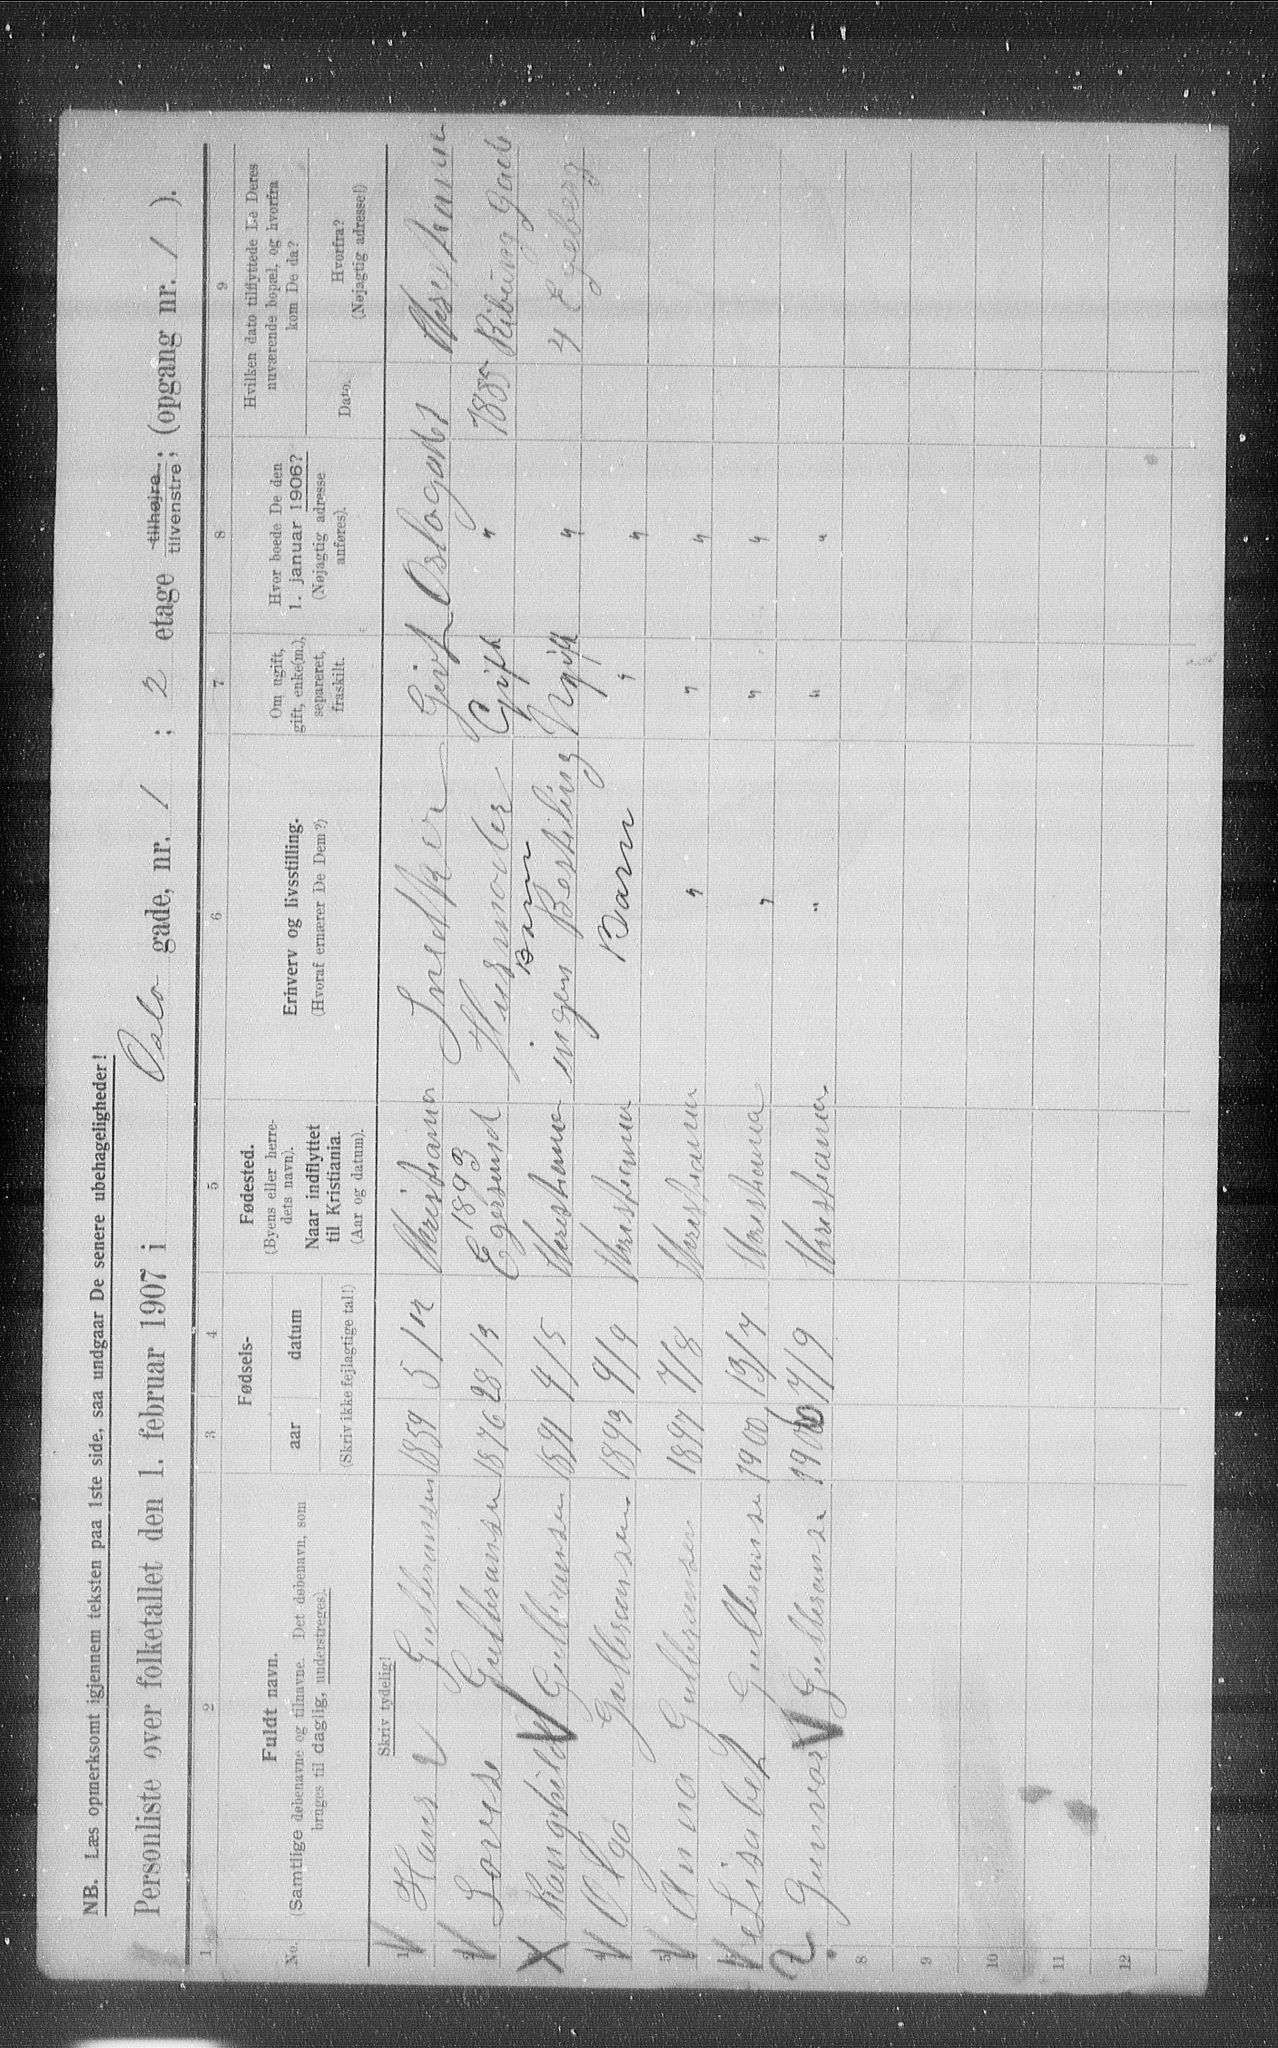 NB. Læs opmerksomt igjennem teksten paa 1ste side, saa undgaar De senere ubehageligheder!
Personliste over folketallet den 1. februar 1907 i Oslo gade, nr. 1 ; 2 etage tilhøjre, tilvenstre; (opgang nr. 1 ).
1 2 3 4 5 6 7 8 9
No.
Fuldt navn.
(Samtlige døbenavne og tilnavne. Det døbenavn, som
bruges til daglig, understreges).
Fødsels-
aar datum
(Skriv ikke fejlagtige tal!)
Fødested.
(Byens eller herre-
dets navn).
Naar indflyttet
til Kristiania.
(Aar og datum).
Erhverv og livsstilling.
(Hvoraf ernærer De Dem?)
Om ugift,
gift, enke(m.),
separeret,
fraskilt.
Hvor boede De den
1. januar 1906?
(Nøjagtig adresse
anføres).
Hvilken dato tilflyttede De Deres
nuværende bopæl, og hvorfra
kom De da?
Dato.
Hvorfra?
(Nøjagtig adresse!)
Skriv tydelig!
1 Hans Gulbransen 1859 5/12 Kristiania Snedker Gift Oslogade 1
2 Lovise Gulbransen 1876 28/3 1893 Egersund Husmoder Gift " 1885 Ribung Gade
Barn
Ranghild Gulbransen 1891 4/5 Kristiania ingen Bestiling Ugift " 4 Egeberg
4 Olga Gulbransen 1893 9/9 Kristiania Barn " "
5 Anna Gulbransen 1897 7/8 Kristiania " " "
Elisabet Gulbransen 1900 13/7 Kristiania " " "
Gunvor Gulbransen 1906 7/9 Kristiania " " "
8
9
10
11
12